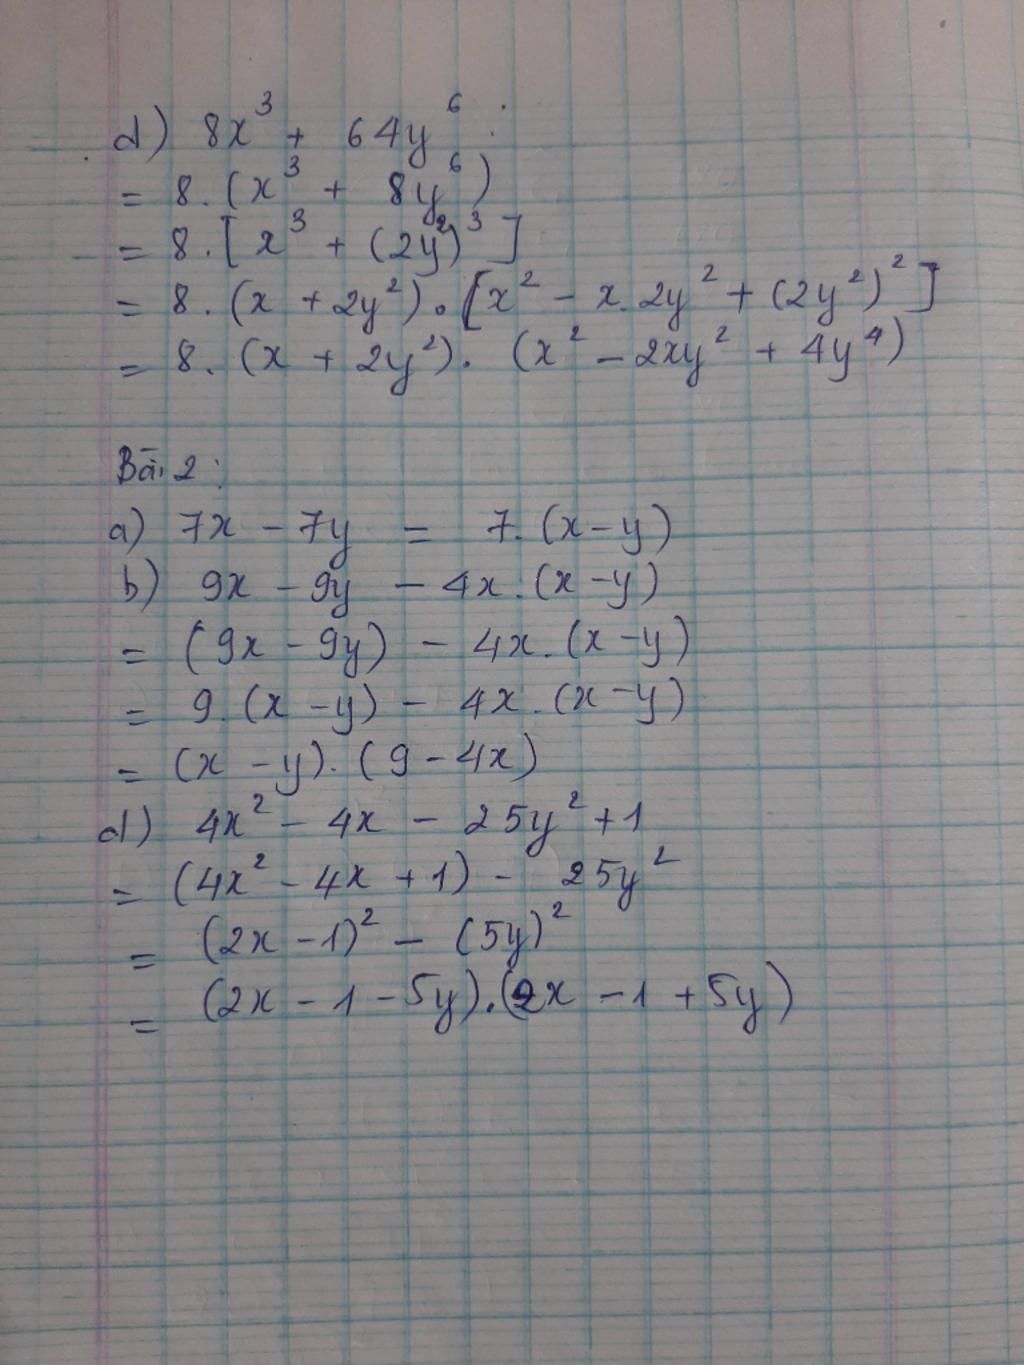 d) 8x³ + 64y⁶
= 8.(x³ + 8y⁶)
= 8.[x³ + (2y²)³]
= 8.(x + 2y²).[x² - x.2y² + (2y²)²]
= 8.(x + 2y²).(x² - 2xy² + 4y⁴)
Bài 2:
a) 7x - 7y = 7.(x-y)
b) 9x - 9y - 4x.(x-y)
= (9x - 9y) - 4x.(x-y)
= 9.(x-y) - 4x.(x-y)
= (x-y).(9-4x)
d) 4x² - 4x - 25y² + 1
= (4x² - 4x + 1) - 25y²
= (2x-1)² - (5y)²
= (2x - 1 - 5y).(2x - 1 + 5y)